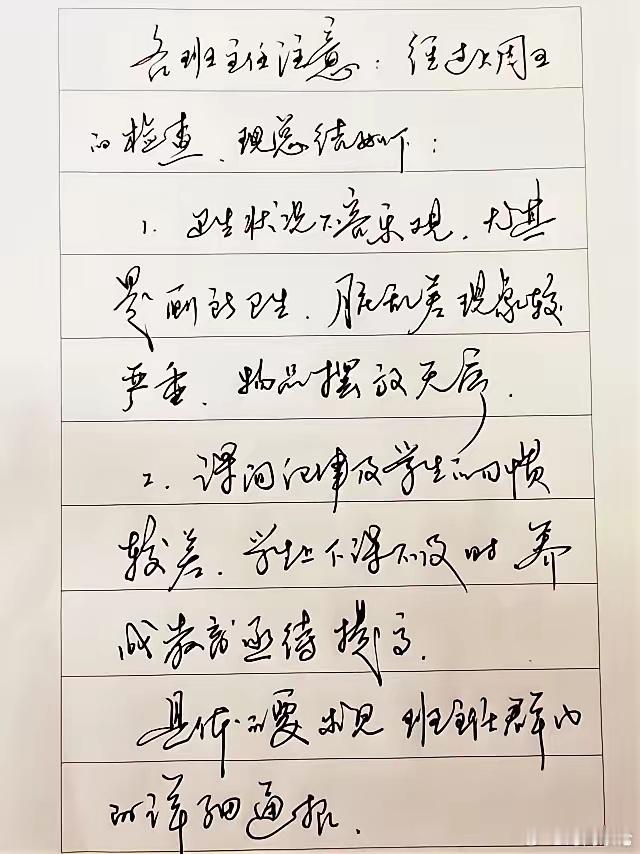 各班主任注意：经过上周五
的检查、现总结如下：
1、卫生状况不容乐观、尤其
是厕所卫生、脏乱差现象较
严重、物品摆放无序.
2、课间纪律及学生的习惯
较差、学生上下课不及时 养
成教育亟待提高.
具体的要求见 班主任群内
的详细通报.